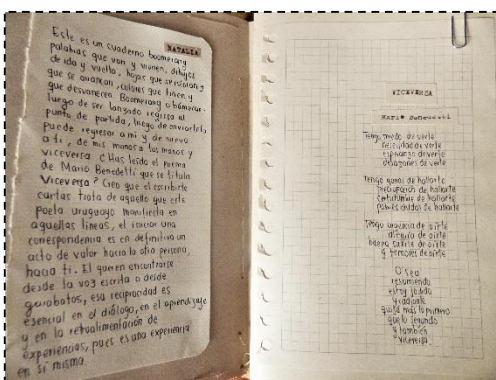 NATALIA
Este es un cuaderno boomerang
palabras que van y vienen, dibujos
de ida y vuelta, hojas que se rozan y
que se avanzan, colores que tiñen y
que desvanecen. Boomerang o búmeran:
luego de ser lanzado regresa al
punto de partida, luego de enviártelo,
puede regresar a mi y de nuevo
a ti, de mis manos a tus manos y
viceversa ¿Has leído el poema
de Mario Benedetti que se titula
Viceversa? Creo que el escribirte
cartas trata de aquello que este
poeta uruguayo manifiesta en
aquellas líneas, el iniciar una
correspondencia es en definitiva un
acto de valor hacia la otra persona,
hacia ti. El querer encontrarse
desde la voz escrita o desde
garabatos, esa reciprocidad es
esencial en el diálogo, en el aprendizaje
y en la retroalimentación de
experiencias, pues es una experiencia
en sí misma.
VICEVERSA
Mario Benedetti
Tengo miedo de verte
necesidad de verte
esperanza de verte
desazones de verte
Tengo ganas de hallarte
preocupación de hallarte
certidumbre de hallarte
pobres dudas de hallarte
Tengo urgencia de oírte
alegría de oírte
buena suerte de oírte
y temores de oírte
O sea
resumiendo
estoy jodido
y radiante
quizá más lo primero
que lo segundo
y también
viceversa.